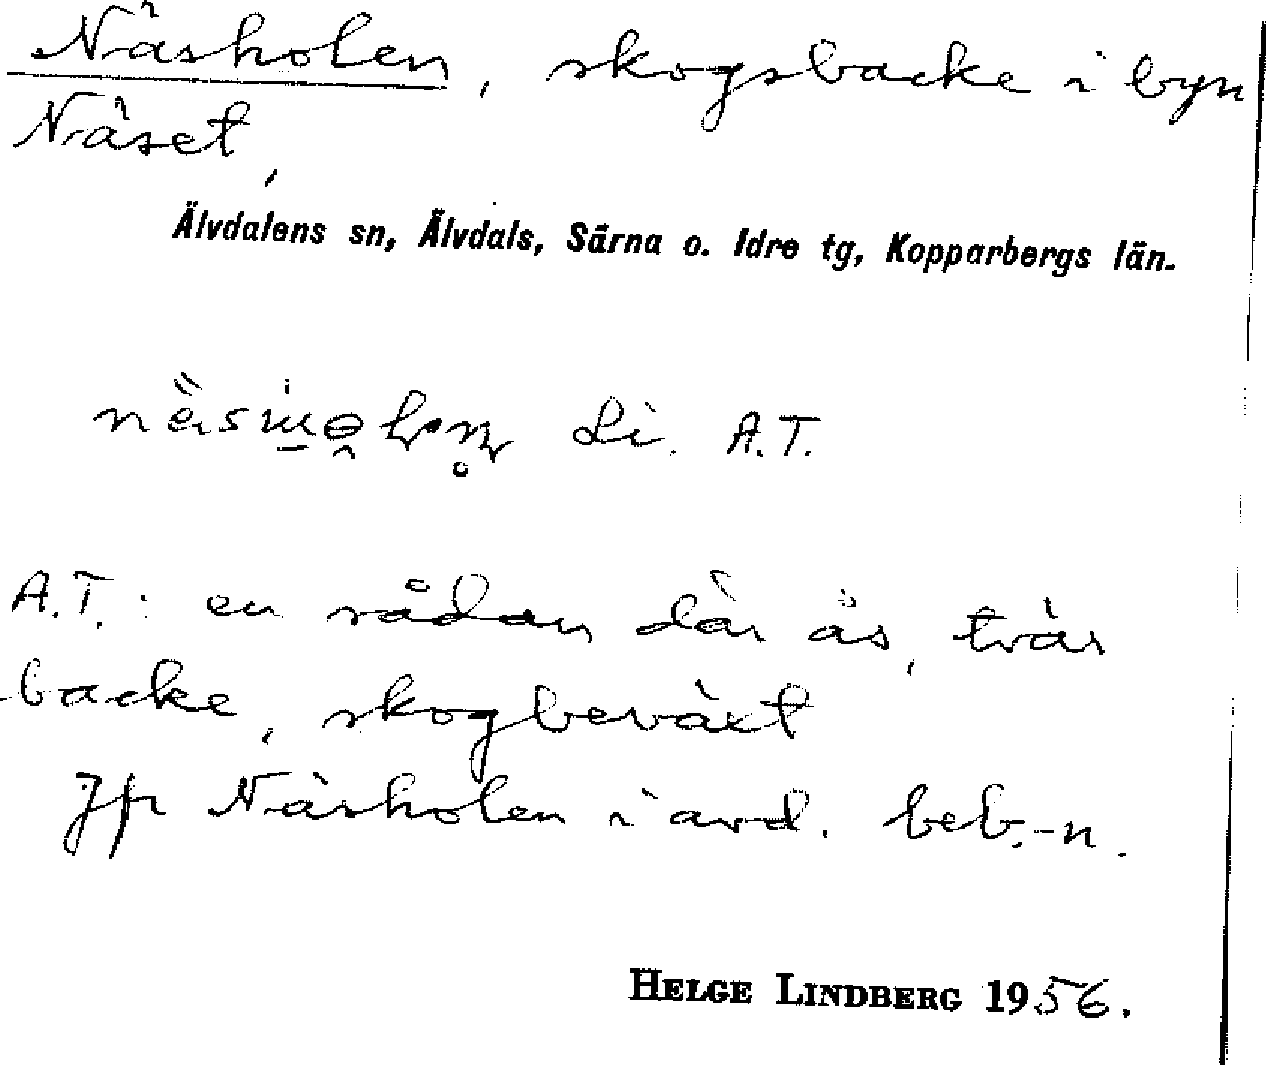 Näsholen, skogsbacke i byn
Näset,
Älvdalens sn, Älvdals, Särna o. Idre tg, Kopparbergs län.
Li. A.T.
A.T.: en sådan där ås, tvär
backe, skogbeväxt
Jfr Näsholen i avd. beb.-n.
HELGE LINDBERG 1956.